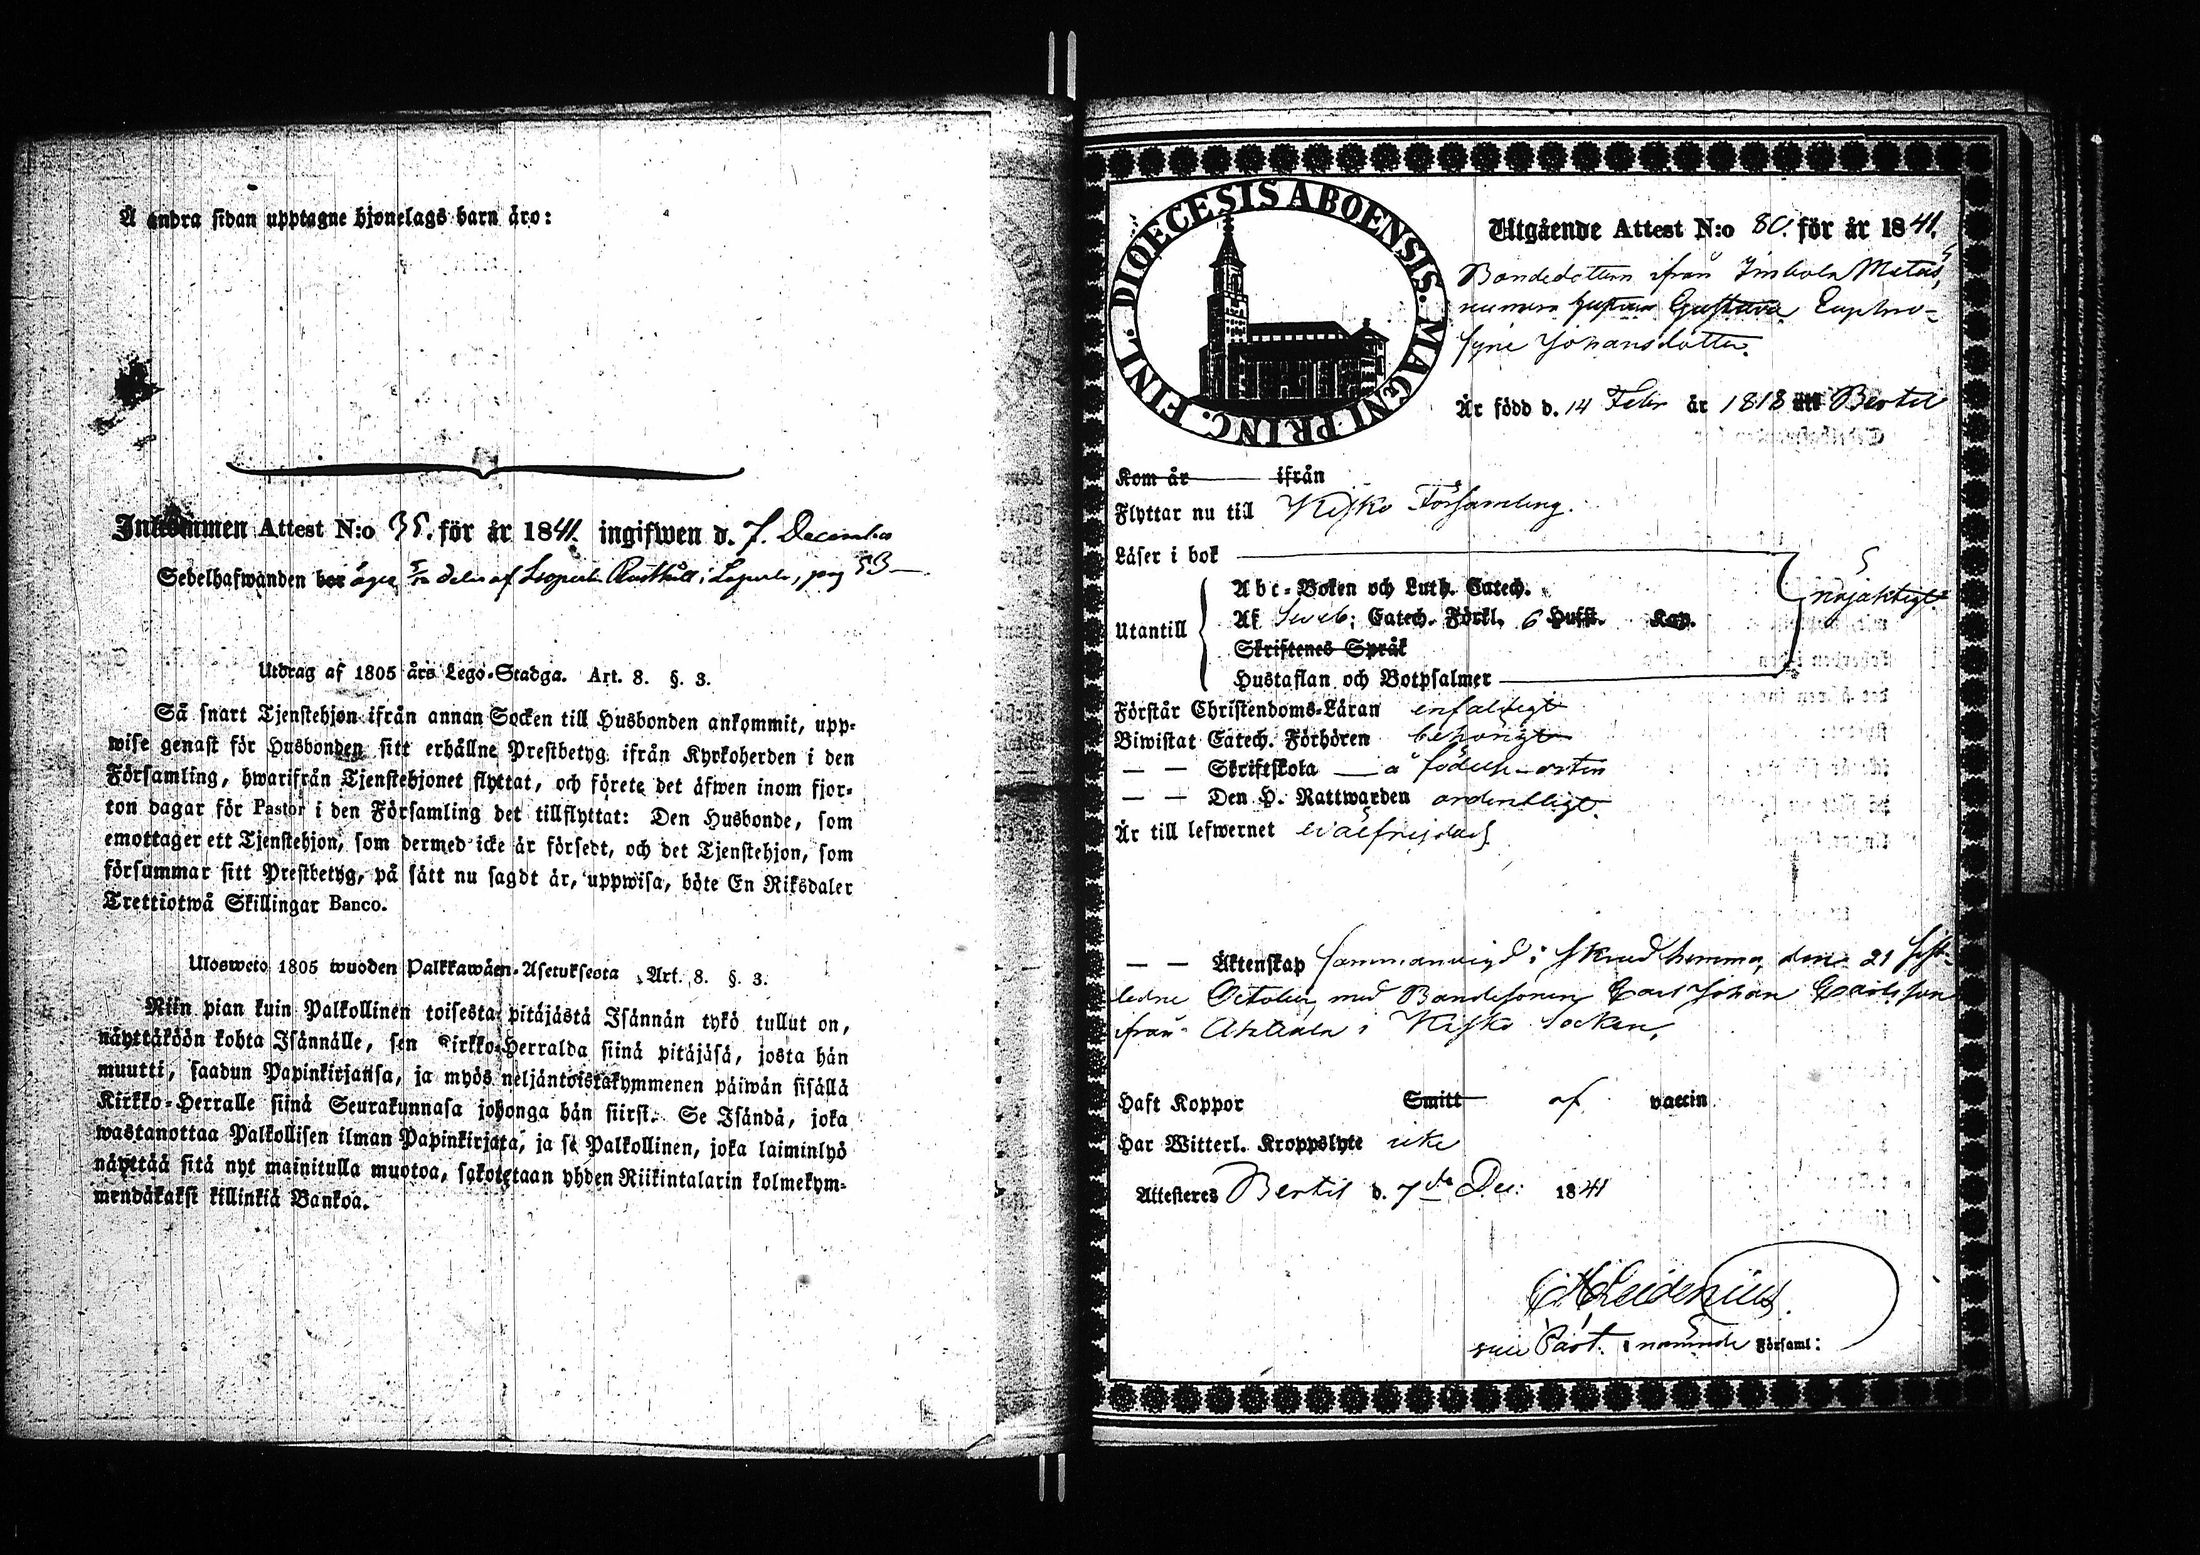 Å andra sidan upptagne hjonelags barn äro:
Inkommen Attest N:o 35. för år 1841. ingifwen d. 7. December
Sedelhafwanden bor äger delar af Rusthåll i pag 53
Utdrag af 1805 års Lego-Stadga. Art. 8. §. 3.
Så snart Tjenstehjon ifrån annan Socken till Husbonden ankommit, upp-
wise genast för Husbonden sitt erhållne Prestbetyg ifrån Kyrkoherden i den
Församling, hwarifrån Tjenstehjonet flyttat, och förete det äfwen inom fjor-
ton dagar för Pastor i den Församling det tillflyttat: Den Husbonde, som
emottager ett Tjenstehjon, som dermed icke är försedt, och det Tjenstehjon, som
försummar sitt Prestbetyg, på sätt nu sagdt är, uppwisa, böte En Riksdaler
Trettiotwå Skillingar Banco.
Ulosweto 1805 wuoden Palkkawäen-Asetuksesta Art. 8. §. 3.
Niin pian kuin Palkollinen toisesta pitäjästä Isännän tykö tullut on,
näyttäköön kohta Isännälle, sen Kirkko-Herralda siinä pitäjäsä, josta hän
muutti, saadun Papinkirjansa, ja myös neljäntoistakymmenen päiwän sisällä
Kirkko-Herralle siinä Seurakunnasa johonga hän siirsi. Se Isändä, joka
wastanottaa Palkollisen ilman Papinkirjata, ja se Palkollinen, joka laiminlyö
näyttää sitä nyt mainitulla muotoa, sakotetaan yhden Riikintalarin kolmekym-
mendäkaksi killinkiä Bankoa.
FINL. DIOECESIS ABOENSIS. MAGNI PRINC.
Utgående Attest N:o 80. för år 1841.
Bondedottern ifrån Imbola
Gustava Euphro-
syne Johansdotter.
Är född d. 14 Febr år 1818 uti Bertil
Kom år ifrån
Flyttar nu till Kisko Församling.
Läser i bok
Utantill
Abc-Boken och Luth. Catech.
Af Sveb: Catech. Förkl. 6 Hufst. Kap.
Skriftenes Språk
Hustaflan och Botpsalmer
nöjaktigt
Förstår Christendoms-Läran enfaldigt
Biwistat Catech. Förhören behörigt
— — Skriftskola — å födelse-orten
— — Den H. Nattwarden ordentligt.
Är till lefwernet wälfrejdad
— — Äktenskap sammanvigd i hemma, den 21 sist-
ledne October med Bondesonen Carl Johan Carlsson
ifrån i Kisko Socken.
Haft Koppor Smitt af vaccin
Har Witterl. Kroppslyte icke
Attesteres Bertil d. 7de Dec: 1841
Past. i nämnde Församl: